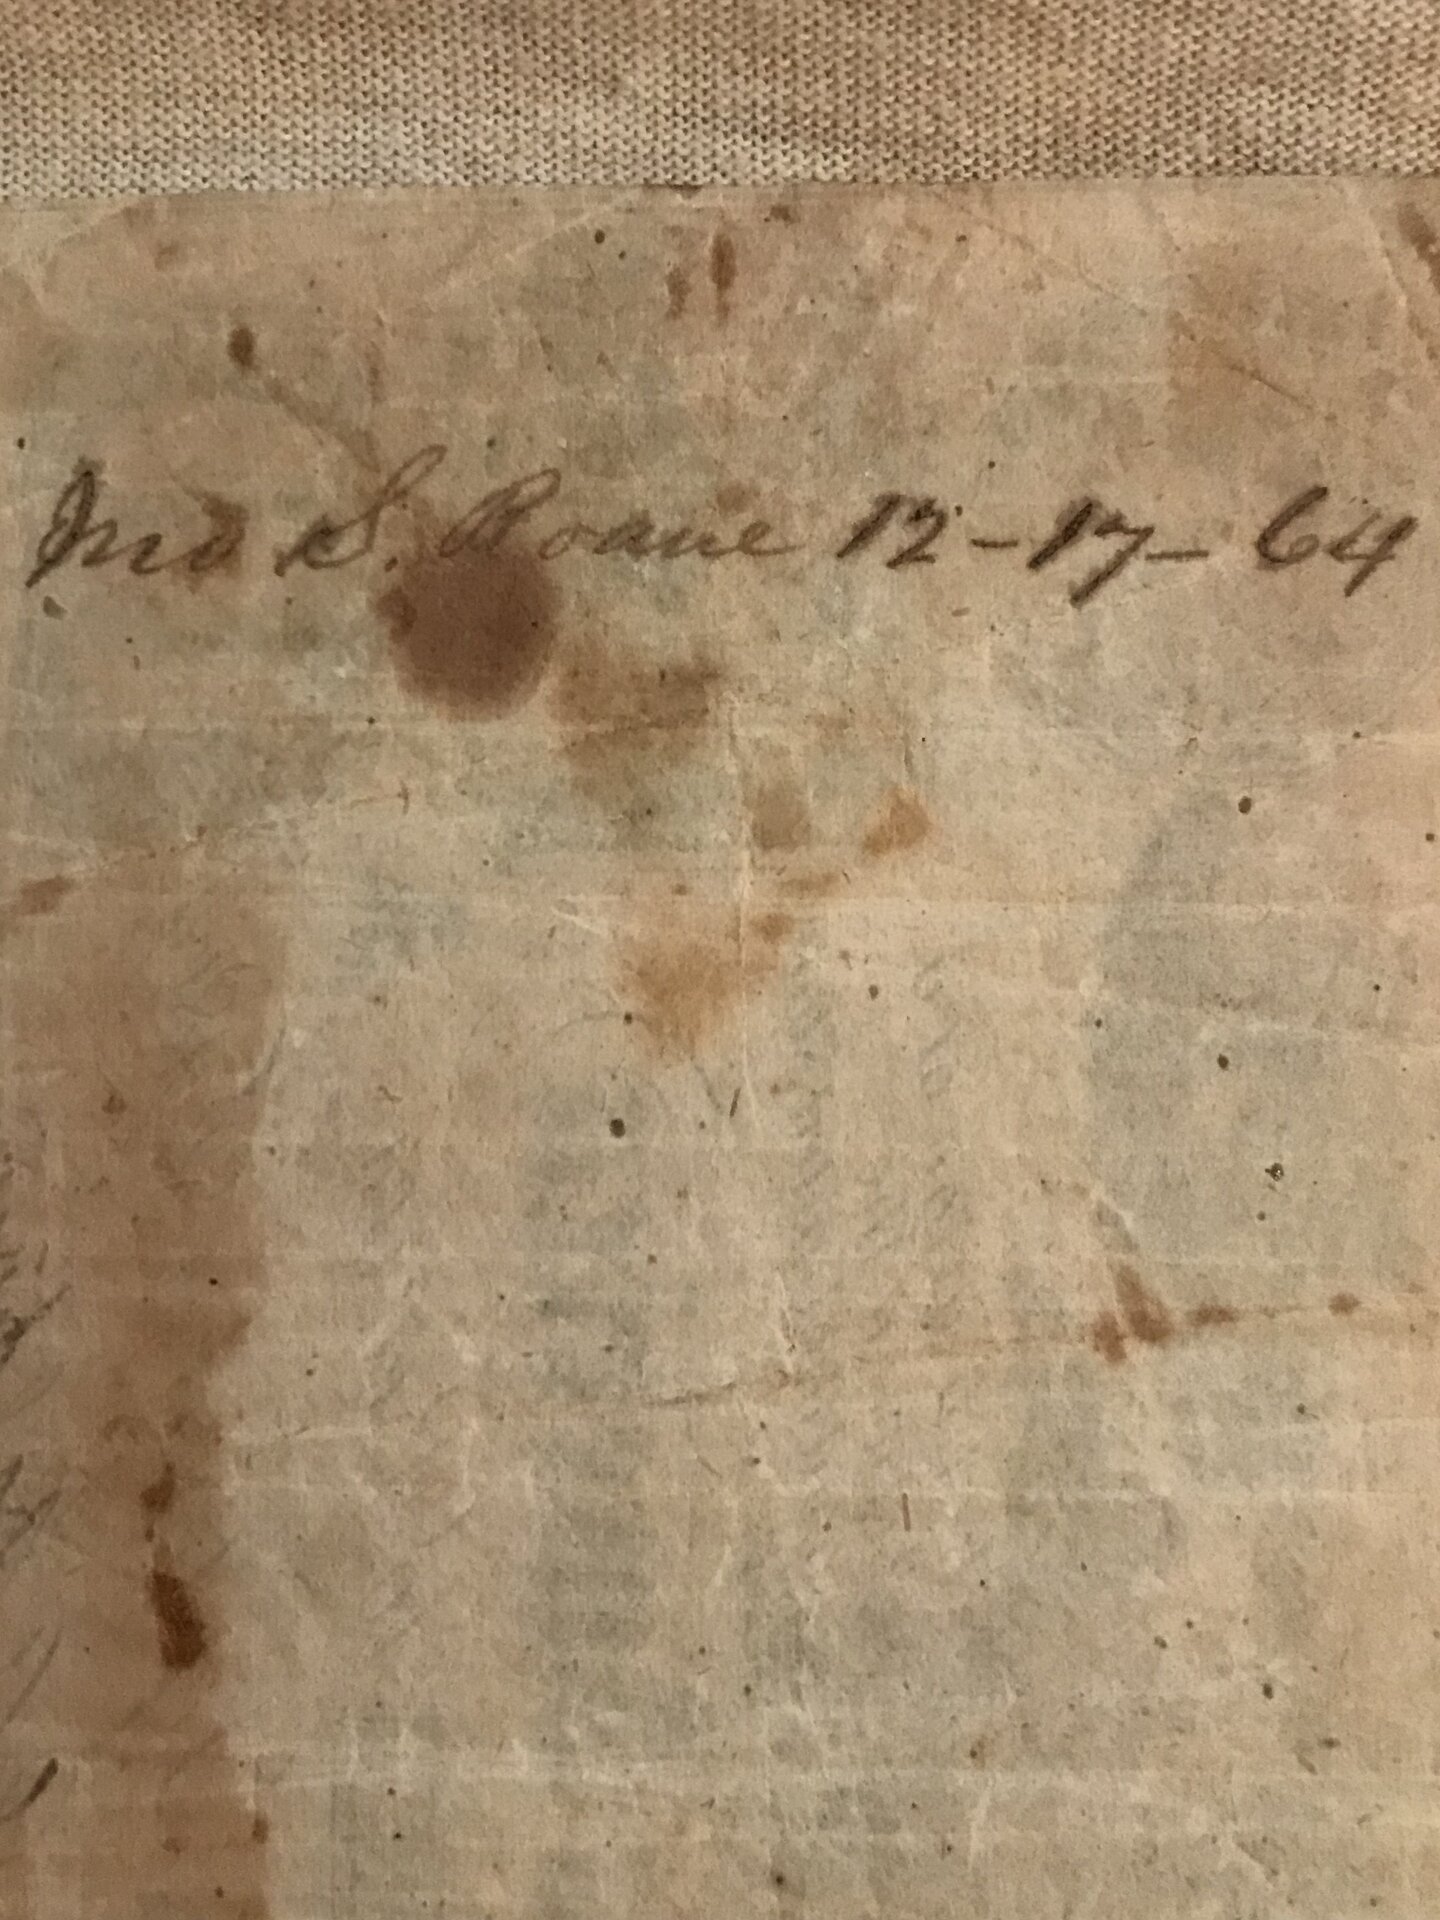 Jno S. Roane 12-17-64